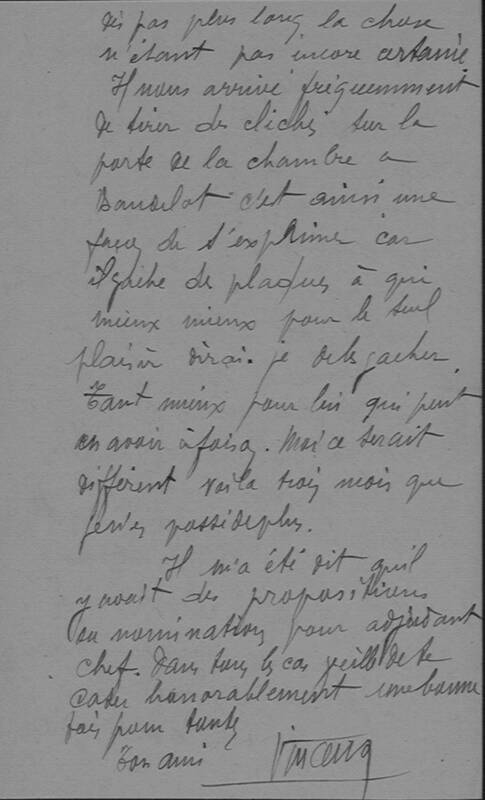 dis pas plus long la chose
n'étant pas encore certaine
Il nous arrive fréquemment
de tirer des clichés sur la
porte de la chambre a
Baudelot c'est ainsi une
façon de s'exprimer car
il gache des plaques à qui
mieux mieux pour le seul
plaisir dirai-je de les gacher
Tant mieux pour lui qui peut
en avoir à foison. Moi ce serait
différent voila trois mois que
je n'en possède plus.
Il m'a été dit qu'il
y avait des propositions
de nomination pour adjudant
chef. Dans tous les cas veille de te
caser honorablement une bonne
fois pour toutes
Ton ami